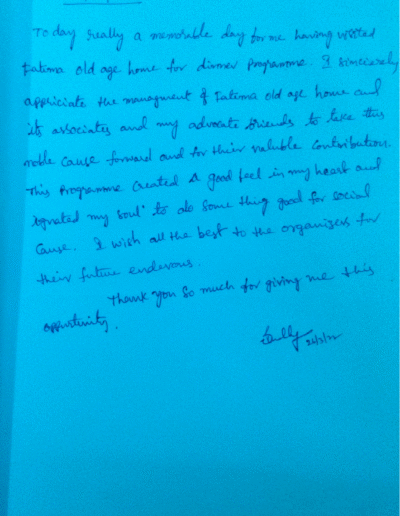 Today really a memorable day for me having visited
Fatima old age home for dinner Programme. I sincerely
appriciate the managment of Fatima old age home and
its associates and my advocate friends to take this
noble cause forward and for their valuble contribution.
This Programme created a good feel in my heart and
ignated my soul to do some thing good for social
cause. I wish all the best to the organisers for
their future endevous.
Thank you so much for giving me this
oppurtunity.